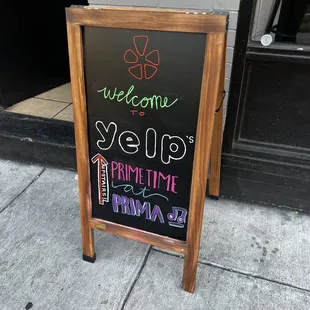 welcome
TO
yelp's
UPSTAIRS!
PRIMETIME
at
PRIMA